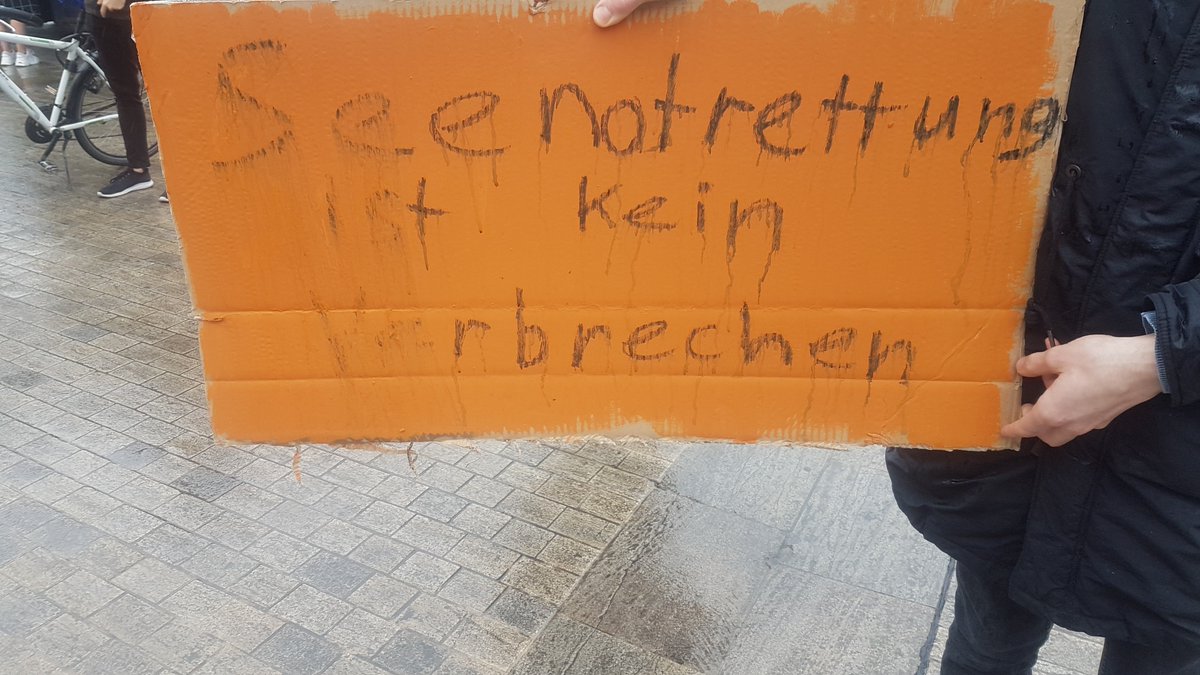 Seenotrettung
ist kein
Verbrechen